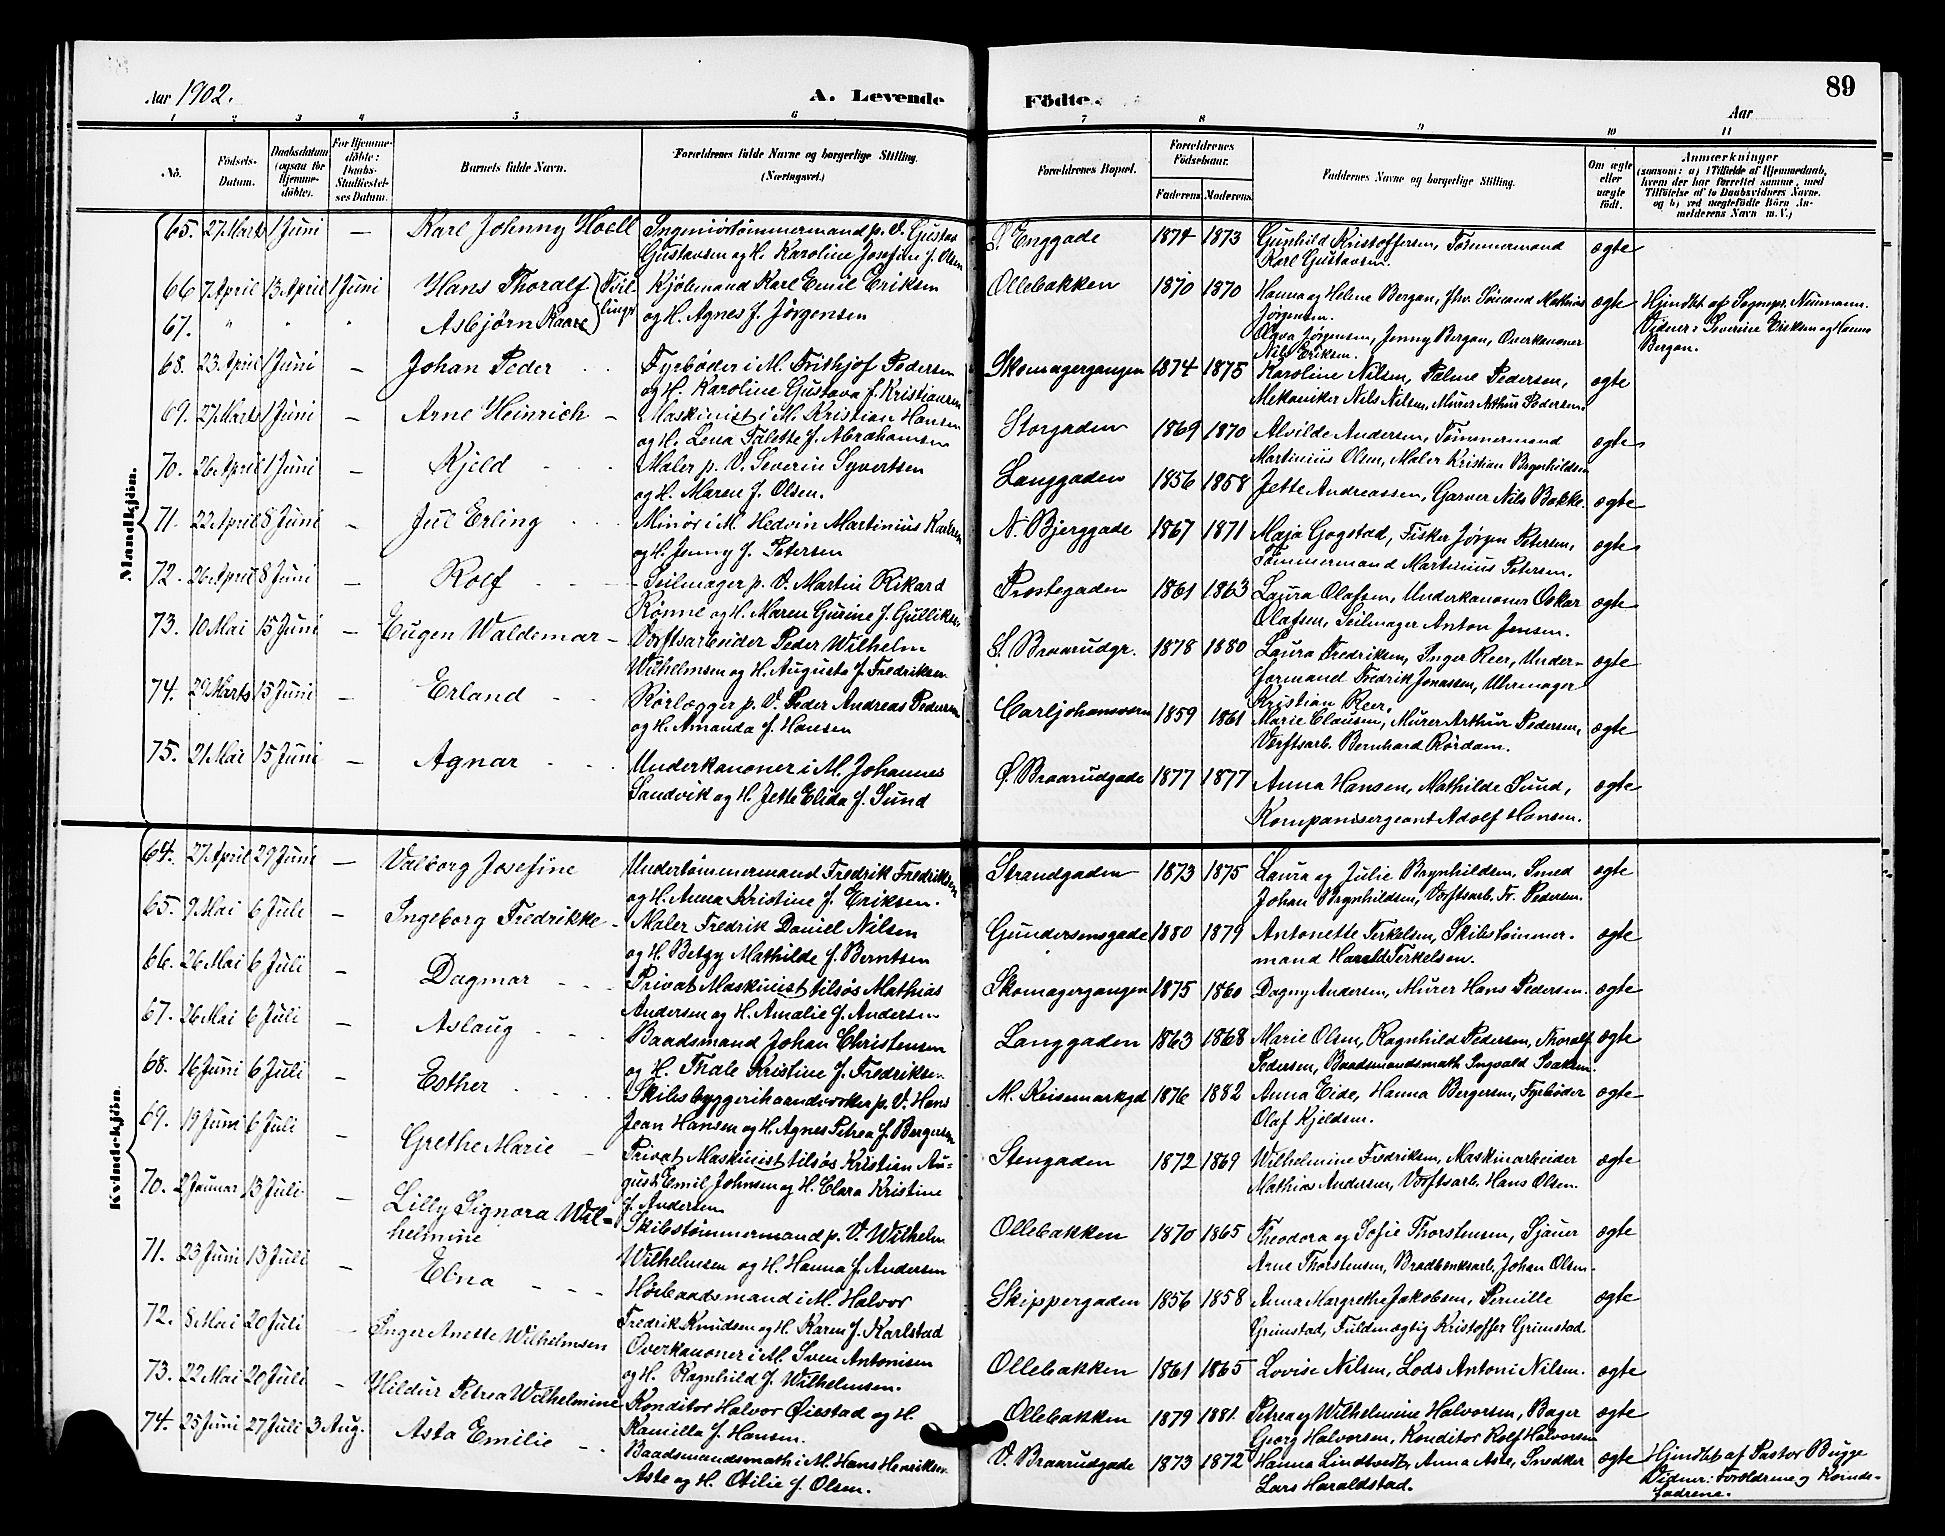 Aar 1902.
A. Levende
Födte.
89
Aar
1 2 3 4 5 6 7 8 9 10 11
No.
Födsels-Datum.
Daabsdatum (ogsaa for Hjemmedöbte).
For Hjemmedöbte: Daabs-Stadfæstelses Datum.
Barnets fulde Navn.
Forældrenes fulde Navne og borgerlige Stilling. (Næringsvei.)
Forældrenes Bopæl.
Forældrenes Födselsaar.
Faderens Moderens
Faddernes Navne og borgerlige Stilling.
Om ægte eller uægte födt.
Anmærkninger
(saasom: a) i Tilfælde af Hjemmedaab, hvem der har forrettet samme, med Tilföielse af to Daabsvidners Navne, og b) ved uægtefödte Börn Anmelderens Navn m. V.)
Mandkjön.
65. 27 Marts 1 Juni — Karl Johnny Hoell Ingeniørtømmermand p. V. Gustav
Gustavsen og H. Karoline Josefine f. Olsen
Ø. Enggade 1874 1873 Gunhild Kristoffersen, Tømmermand
Karl Gustavsen. ægte
66 7 April 13 April 1 Juni Hans Thoralf Tvillinger Kjøbmand Karl Emil Eriksen
67. " " " Asbjørn Kaare og H. Agnes f. Jørgensen
Ollebakken 1870 1870 Hanna og Helene Bergan, Sømand Mathias
Jørgensen.
Olava Jørgensen, Jenny Bergan, Overkanoner
Nils Eriksen. ægte
Hjmdbt af Sognepr. Neumann.
Vidner: Severine Eriksen og Hanna
Bergan.
68. 23 April 1 Juni — Johan Peder Fyrbøder i M. Frithjof Pedersen
og H. Karoline Gustava f. Kristiansen
Skomagergangen 1874 1875 Karoline Nilsen, Palme Pedersen,
Mekaniker Nils Nilsen, Murer Arthur Pedersen. ægte
69. 27 Marts 1 Juni — Arne Heinrich Maskinist i M. Kristian Hansen
og H. Lena Talette f. Abrahamsen
Storgaden 1869 1870 Alvilde Andersen, Tømmermand
Martinius Olsen, Maler Kristian Brynhildsen ægte
70. 26 April 1 Juni — Kjeld Maler p. V. Severin Syvertsen
og H. Maren f. Olsen.
Langgaden 1856 1858 Jette Andreassen, Garver Nils Bakke. ægte
71. 22 April 8 Juni — Jul Erling Minør i M. Hedvin Martinius Karlsen
og H. Jenny f. Petersen
N. Bjerggade 1867 1871 Maja Gogstad, Fisker Jørgen Petersen,
Tømmermand Martinius Petersen. ægte
72. 26 April 8 Juni — Rolf Seilmager p. V. Martin Rikard
Rønne og H. Maren Gusine f. Gulliksen
Prostegaden 1861 1863 Laura Olafsen, Underkanoner Oskar
Olafsen, Seilmager Anton Jensen. ægte
73. 10 Mai 15 Juni — Eugen Waldemar Værftsarbeider Peder Wilhelm
Wilhelmsen og H. Augusta f. Fredriksen
S. Braarudgr. 1878 1880 Laura Fredriksen, Inger Reer, Under-
formand Fredrik Jonassen, Uhrmager
Kristian Reer. ægte
74. 29 Marts 15 Juni — Erland Rørlægger p. V. Peder Andreas Pedersen
og H. Amanda f. Hansen
Carljohansværn 1859 1861 Marie Clausen, Murer Arthur Pedersen,
Værftsarb. Bernhard Rørdam. ægte
75. 21 Mai 15 Juni — Agnar Underkanoner i M. Johannes
Sandvik og H. Jette Elida f. Sund
Ø. Braarudgade 1877 1877 Anna Hansen, Mathilde Sund,
Kompanisergeant Adolf Hansen. ægte
Kvindekjön.
64. 27 April 29 Juni — Valborg Josefine Undertømmermand Fredrik Fredriksen
og H. Anna Kristine f. Eriksen.
Strandgaden 1873 1875 Laura og Julie Brynhildsen, Smed
Johan Brynhildsen, Værftsarb. Fr. Pedersen. ægte
65. 9 Mai 6 Juli — Ingeborg Fredrikke Maler Fredrik Daniel Nilsen
og H. Betzy Mathilde f. Berntsen
Gundersensgade 1880 1879 Antonette Terkelsen, Skibstømmer-
mand Harald Terkelsen. ægte
66. 26 Mai 6 Juli — Dagmar Privat Maskinist tilsøs Mathias
Andersen og H. Amalie f. Andersen
Skomagergangen 1875 1860 Dagny Andersen, Murer Hans Pedersen. ægte
67. 26 Mai 6 Juli — Aslaug Baadsmand Johan Christensen
og H. Thale Kristine f. Fredriksen.
Langgaden 1863 1868 Marie Olsen, Ragnhild Pedersen, Thoralf
Pedersen, Baadsmandsmath Ingvald Isaksen. ægte
68. 16 Juni 6 Juli — Esther Skibsbyggerihaandverker p. V. Hans
Jean Hansen og H. Agnes Petrea f. Bergersen
M. Keisemarkgd 1876 1882 Anna Eide, Hanna Bergersen, Fyrbøder
Olaf Kjeldsen. ægte
69. 19 Juni 6 Juli — Grethe Marie Privat Maskinist tilsøs Kristian Au-
gust Emil Johnsen og H. Clara Kristine
f. Andersen
Stengaden 1872 1869 Wilhelmine Fredriksen, Maskinarbeider
Mathias Andersen, Værftsarb. Hans Olsen. ægte
70. 2 Januar 13 Juli — Lilly Signora Wil-
helmine Skibstømmermand p. V. Wilhelm
Wilhelmsen og H. Hanna f. Andersen
Ollebakken 1870 1865 Theodora og Sofie Thorstensen, Sjauer
Arne Thorstensen, Bradbænksarb. Johan Olsen. ægte
71. 23 Juni 13 Juli — Elna Høibaadsmand i M. Halvor
Fredrik Knudsen og H. Karen f. Karlstad
Skippergaden 1856 1858 Anna Margrethe Jakobsen, Pernille
Grimstad, Fuldmægtig Kristoffer Grimstad. ægte
72. 8 Mai 20 Juli — Inger Anette Wilhelmsen Overkanoner i M. Sven Antonisen
og H. Ragnhild f. Wilhelmsen.
Ollebakken 1861 1865 Lovise Nilsen, Lods Antoni Nilsen. ægte
73. 22 Mai 20 Juli — Hildur Petrea Wilhelmine Konditor Halvor Øiestad og H.
Kamilla f. Hansen.
Ollebakken 1879 1881. Petrea og Wilhelmine Halvorsen, Bager
Georg Halvorsen, Konditor Rolf Halvorsen ægte
74. 25 Juni 27 Juli 3 Aug. Asta Emilie Baadsmandsmath i M. Hans Henriksen
Aste og H. Otilie f. Olsen.
V. Braarudgade 1873 1872 Hanna Lindtvedt, Anna Aste, Snedker
Lars Haraldstad. ægte
Hjmdbt af Pastor Bugge
Vidner: Forældrene og Kvinde-
fadrene.